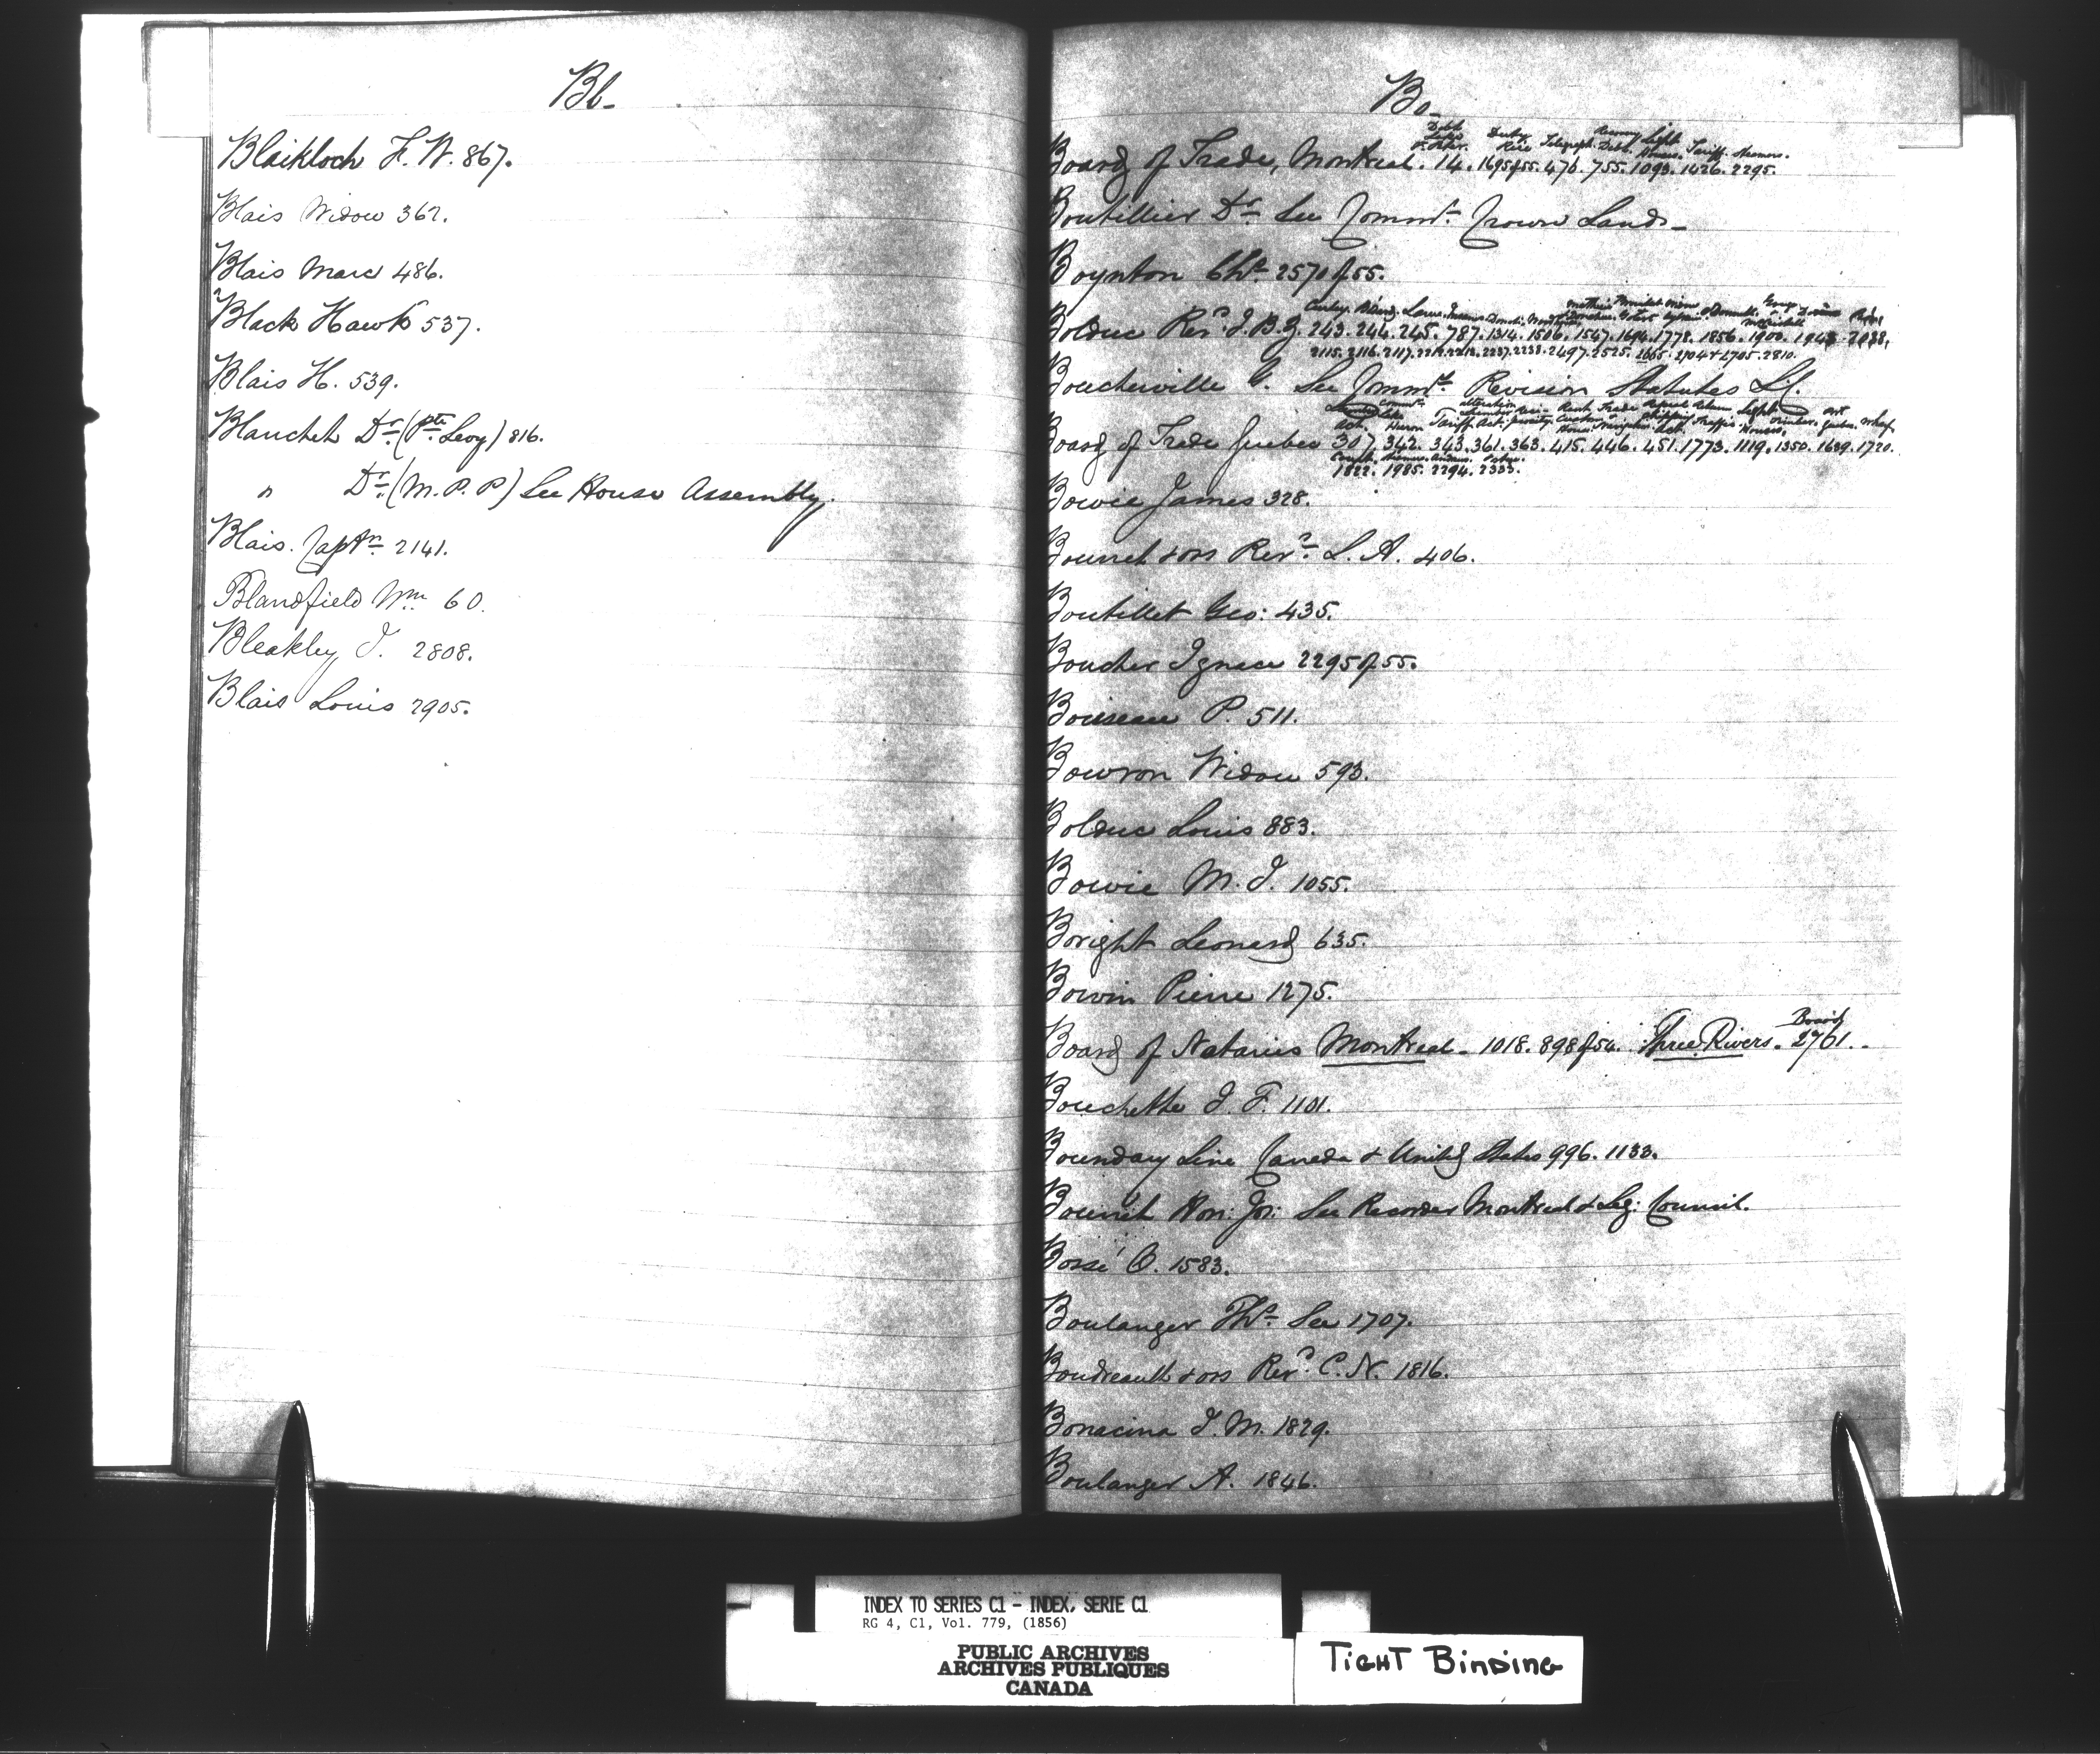 Bl-
Blaikloch F. W. 867.
Blais Widow 362.
Blais Marc 486.
Black Hawk 537.
Blais H. 539.
Blanchet Dr. (Pte. Levy) 816.
" Dr. (M.P.P) See House Assembly.
Blais Captn 2141.
Blandfield Wm 60.
Bleakley J. 2808.
Blais Louis 2905.
Bo-
Duty Light
Telegraph Debt. Houses. Tariff. Steamers.
Board of Trade, Montreal. 14. 1695 of 55. 476. 755. 1093. 1426. 2295.
Boutillier Dr. See Commr. Crown Lands-
Boynton Chs. 2570 of 55.
Bolduc Revd. J. B. Z. 243. 244. 245. 787. 1314. 1506. 1547. 1694. 1778. 1856. 1900. 1943. 2038.
2115. 2116. 2117. 2237. 2238. 2497. 2525. 2665. 2704 & 2705. 2810.
Boucherville G. See Commrs. Revision Statutes L.C.
Huron Tariff Act.
Board of Trade Quebec 307. 342. 343. 361. 363. 415. 446. 451. 1773. 1119. 1350. 1639. 1720.
1822. 1985. 2294. 2333.
Bowie James 328.
Bourret & ors Revd. L. A. 406.
Boutillet Geo: 435.
Boucher Ignace 2295 of 55.
Boisseau P. 511.
Bowron Widow 593.
Bolduc Louis 883.
Bowie M. J. 1055.
Boright Leonard 635.
Bowin Pierre 1275.
Board
Board of Notaries Montreal - 1018. 898 of 54. Three Rivers. 2761.-
Bouchette J. F. 1101.
Boundary Line Canada & United States 996. 1133.
Bourret Hon: Jos: See Recorder Montreal & Leg: Council.
Bossé O. 1583.
Boulanger Ths. See 1707.
Boudreault & ors Revd. C. N. 1816.
Bonacina J. M. 1829.
Boulanger A. 1846.
INDEX TO SERIES C1 - INDEX, SERIE C1
RG 4, C1, Vol. 779, (1856)
PUBLIC ARCHIVES
ARCHIVES PUBLIQUES
CANADA
TIGHT BINDING